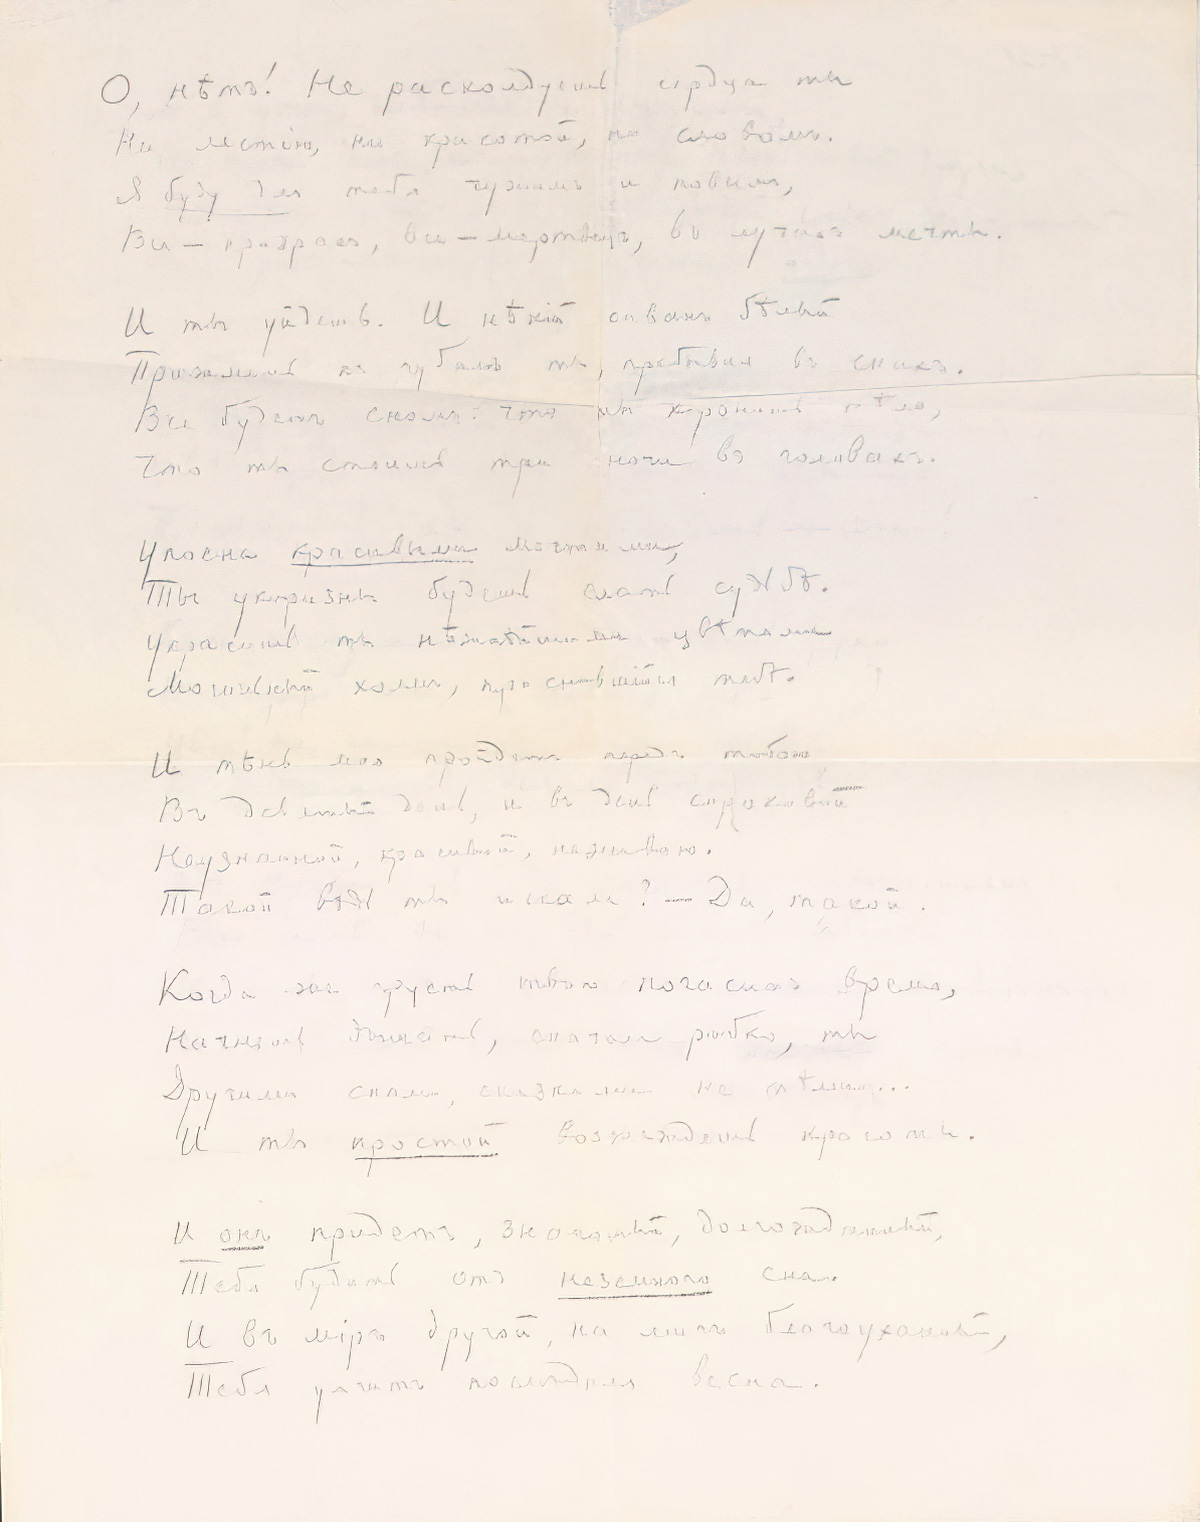 О, нѣтъ! Не расколдуешь сердца ты
Ни лестію, ни красотой, ни словомъ.
Я буду для тебя чужимъ и новымъ,
Все – призракъ, все – мертвецъ, въ лучахъ мечты.
И ты уйдешь. И нѣкій саванъ бѣлый
Прижмешь къ губамъ ты, пребывая въ снахъ.
Все будетъ сномъ: что ты хоронишь тѣло,
Что ты стоишь три ночи въ головахъ.
Упоена красивыми мечтами,
Ты укоризны будешь слать судьбѣ.
Украсишь ты нѣжнѣйшими цвѣтами
Могильный холмъ, приснившійся тебѣ.
И тѣнь моя пройдетъ передъ тобою
Въ девятый день, и въ день сороковой
Неузнанной, красивой, неживою.
Такой вѣдь ты искала? – Да, такой.
Когда же грусть твою погаситъ время,
Начнешь дышать, сначала робко, ты
Другими снами, сказками не тѣми...
И ты простой возжаждешь красоты.
И онъ придетъ, знакомый, долгожданный,
Тебя будить отъ неземного сна.
И въ міръ другой, на мигъ благоуханный,
Тебя умчитъ послѣдняя весна.